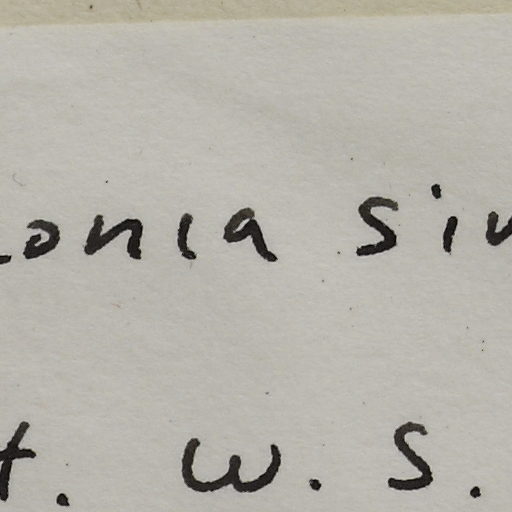 onia sin
t. W. S.